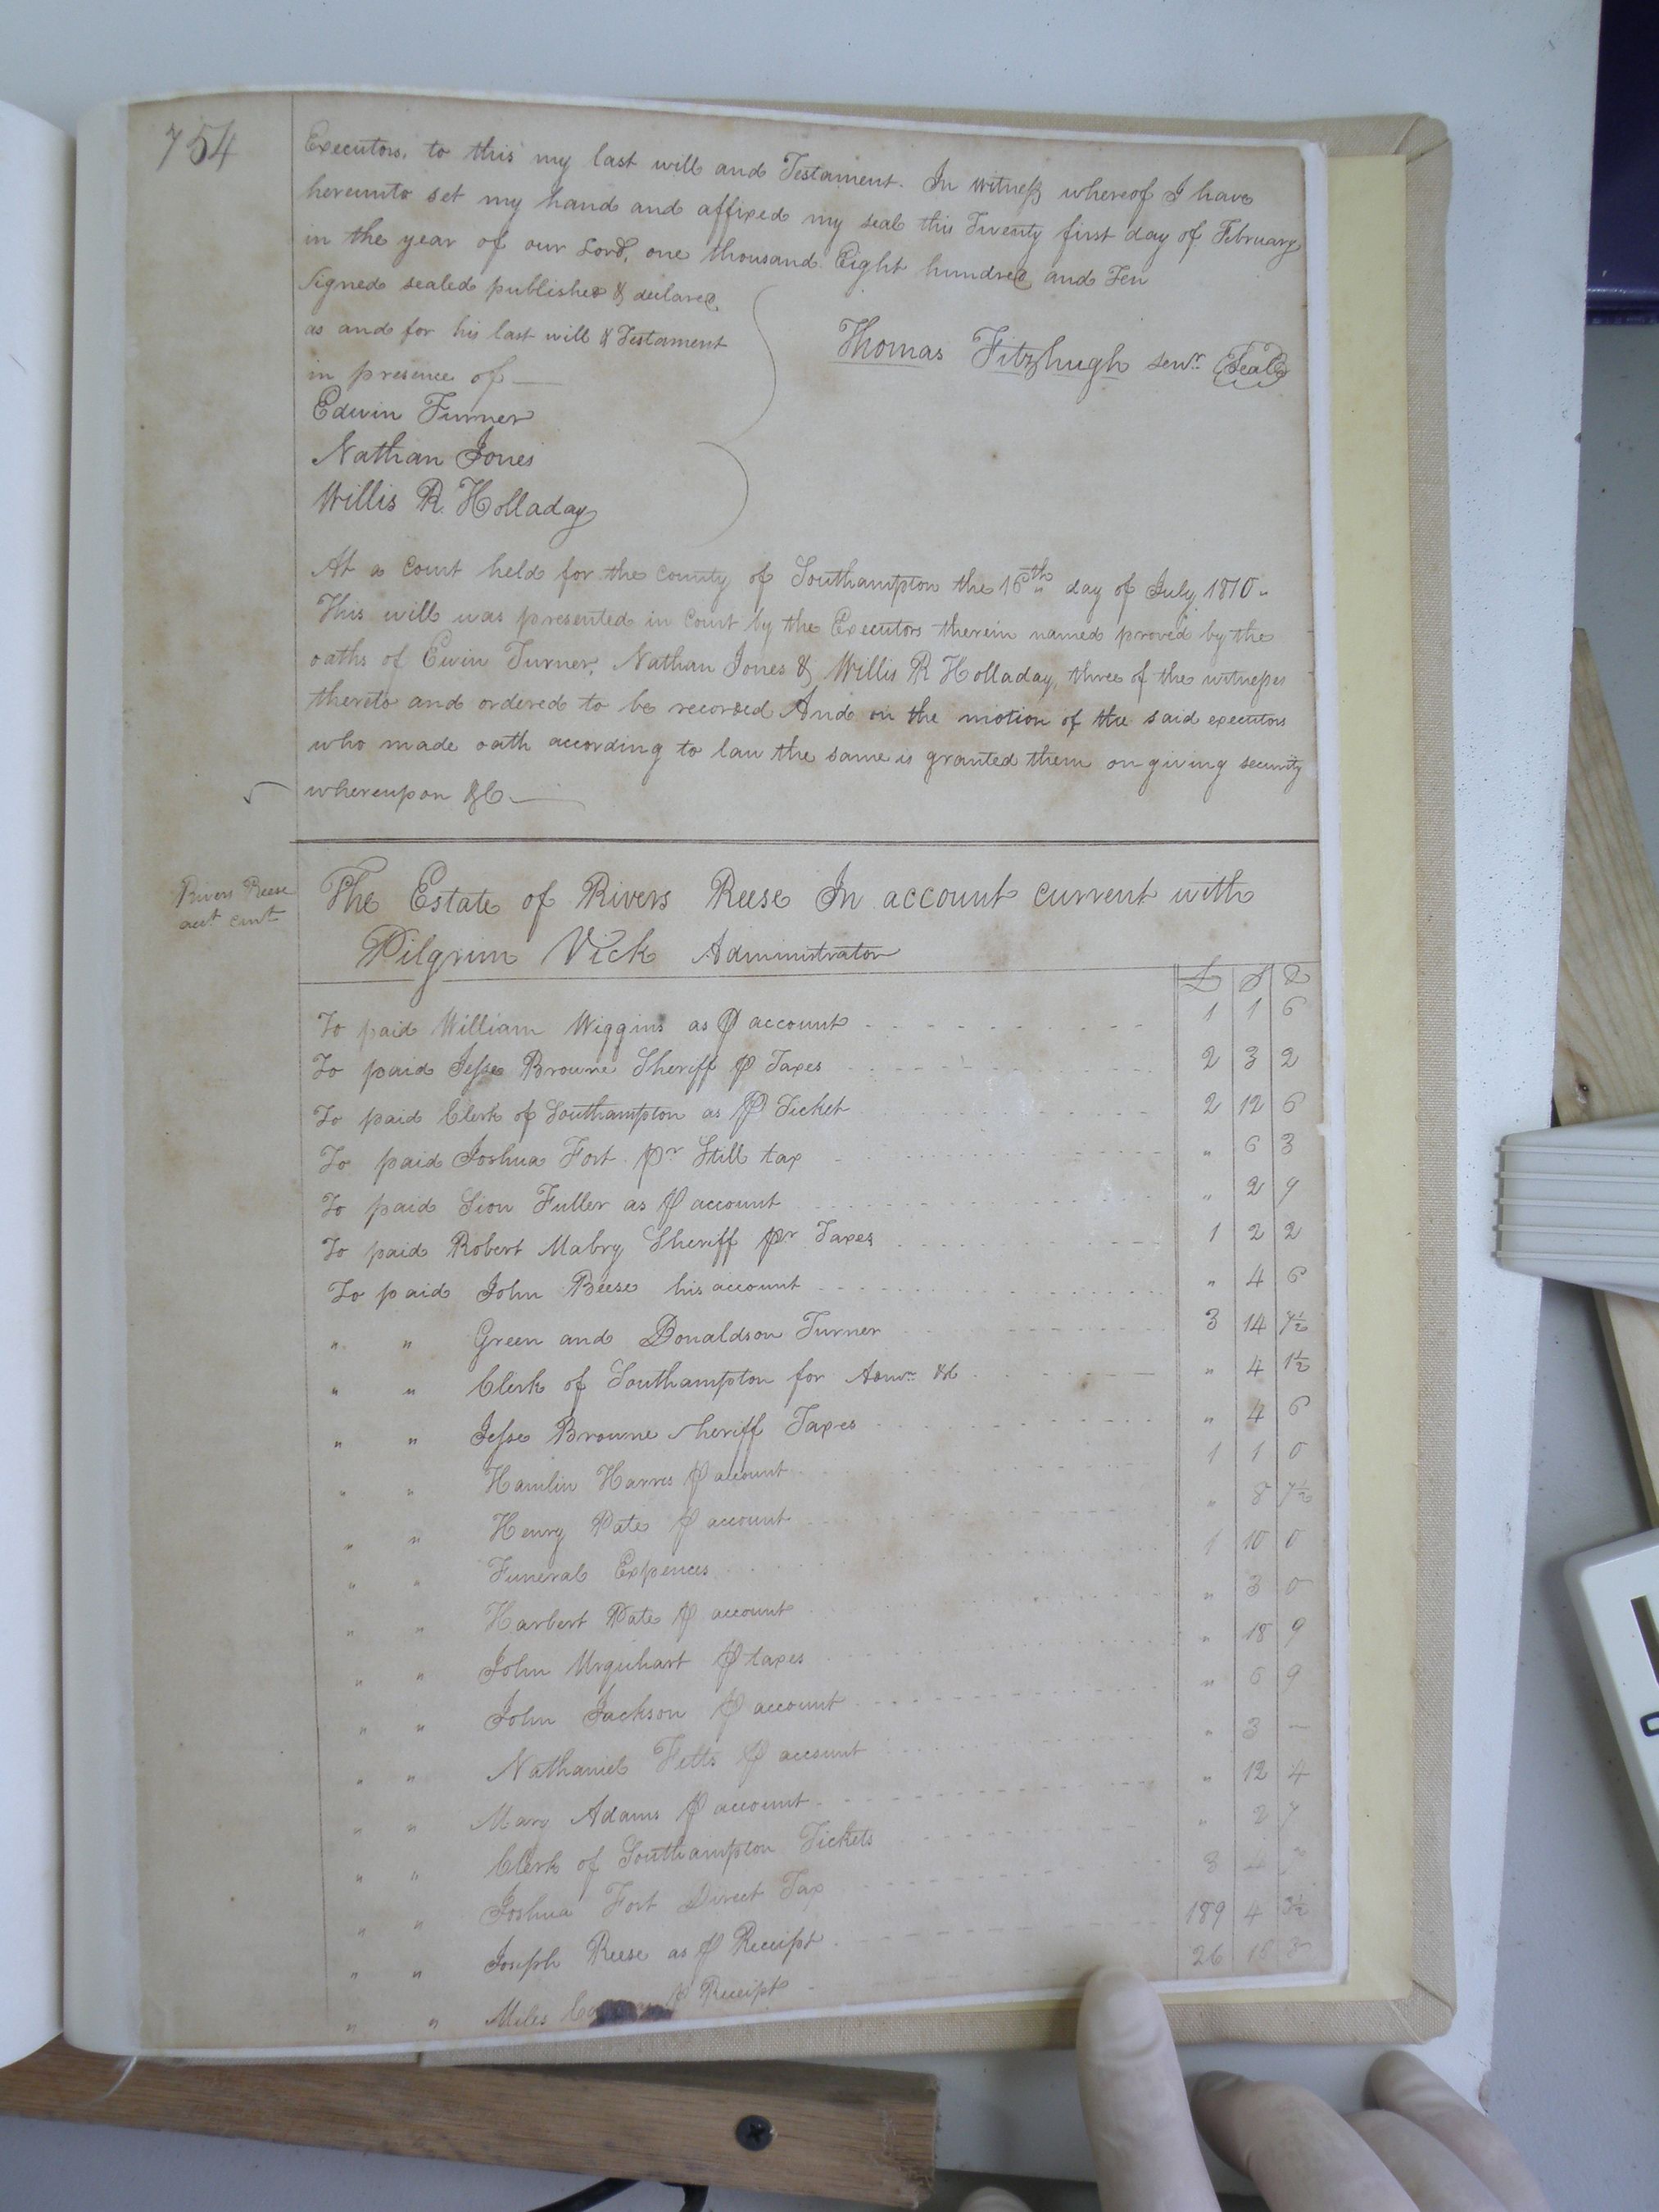 754
Executors, to this my last will and Testament. In witness whereof I have
hereunto set my hand and affixed my seal this Twenty first day of February
in the year of our Lord, one thousand Eight hundred and Ten
Signed sealed published & declared
as and for his last will & Testament
in presence of
Thomas Fitzhugh senr. Seal
Edwin Turner
Nathan Jones
Willis R. Holladay
At a Court held for the County of Southampton the 16th day of July 1810.
This will was presented in Court by the Executors therein named proved by the
oaths of Ewin Turner, Nathan Jones & Willis R Holladay, three of the witnesses
thereto and ordered to be recorded And on the motion of the said executors
who made oath according to law the same is granted them on giving security
whereupon &C
Rivers Reese
acct. curt.
The Estate of Rivers Reese In account current with
Pilgrim Vick Administrator
£ S D
To paid William Wiggins as ⅌ account 1 1 6
To paid Jesse Browne Sheriff ⅌ Taxes 2 3 2
To paid Clerk of Southampton as ⅌ Ticket 2 12 6
To paid Joshua Fort pr Still tax " 6 3
To paid Sion Fuller as ⅌ account " 2 9
To paid Robert Mabry Sheriff pr Taxes 1 2 2
To paid John Reese his account " 4 6
" " Green and Donaldson Turner 3 14 7½
" " Clerk of Southampton for Admr. &c " 4 1½
" " Jesse Browne sheriff Taxes " 4 6
" " Hamlin Harres ⅌ account 1 1 0
" " Henry Pate ⅌ account " 8 7½
" " Funeral Expences 1 10 0
" " Harbert Pate ⅌ account " 3 0
" " John Urquhart ⅌ taxes " 18 9
" " John Jackson ⅌ account " 6 9
" " Nathaniel Fitts ⅌ account " 3 —
" " Mary Adams ⅌ account " 12 4
" " Clerk of Southampton Tickets " 2 7
" " Joshua Fort Direct Tax 3 4
" " Joseph Reese as ⅌ Receipt 189 4 3½
" " Miles ⅌ Receipt 26 15 8